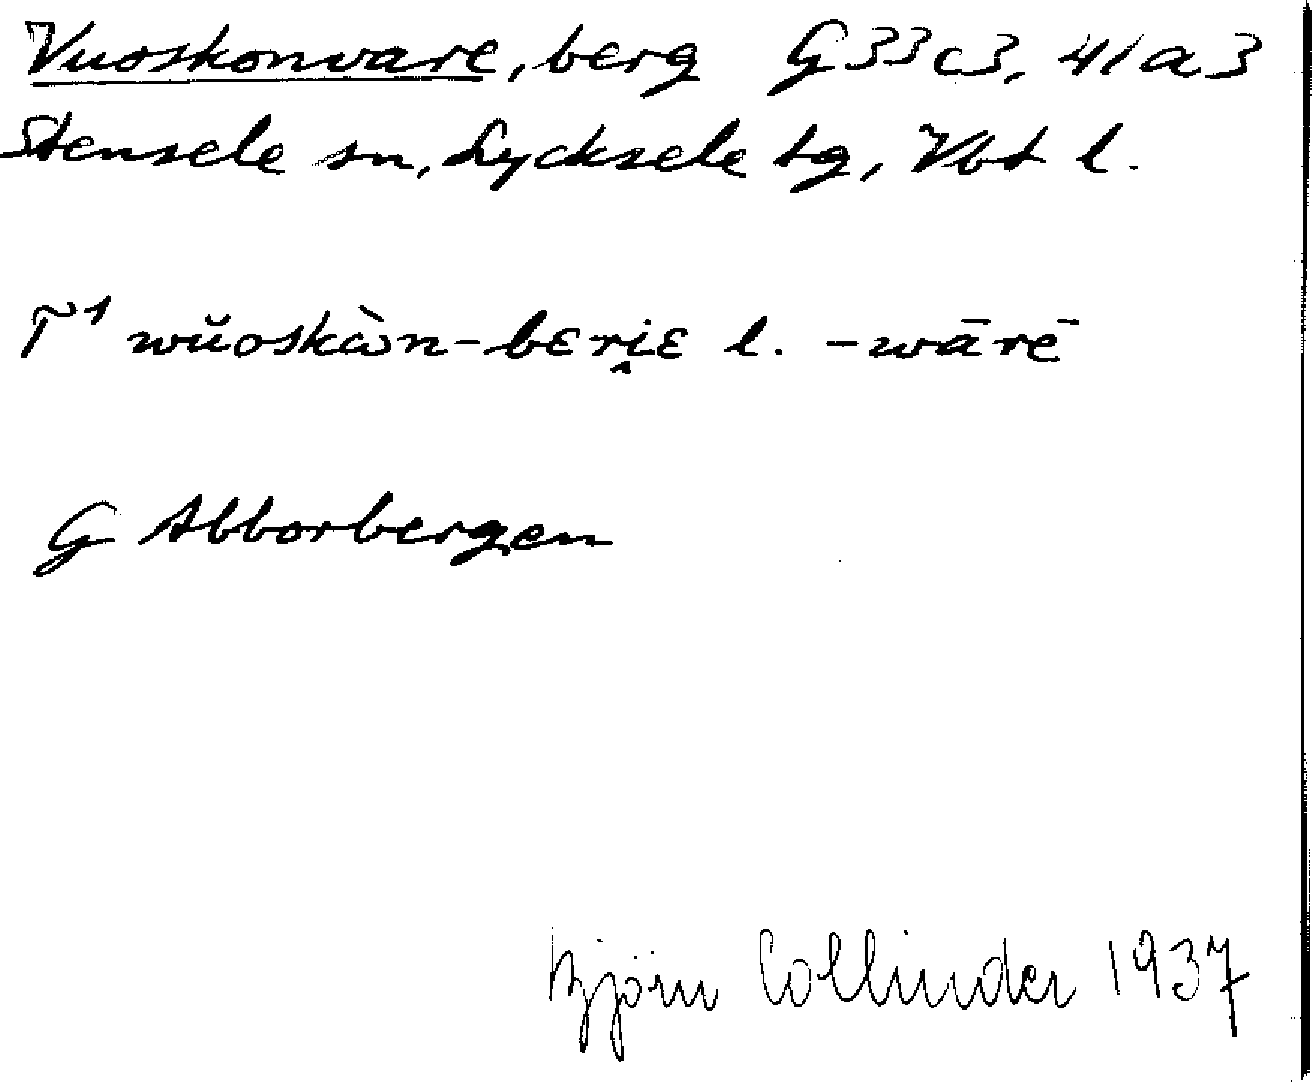 Vuoskonvare, berg G 33 c 3, 41 a 3
Stensele sn, Lycksele tg, Vbt l.
T̃¹ wŭoskὰn-bɛri̯ɛ l. -wārē
G Abborbergen
Björn Collinder 1937